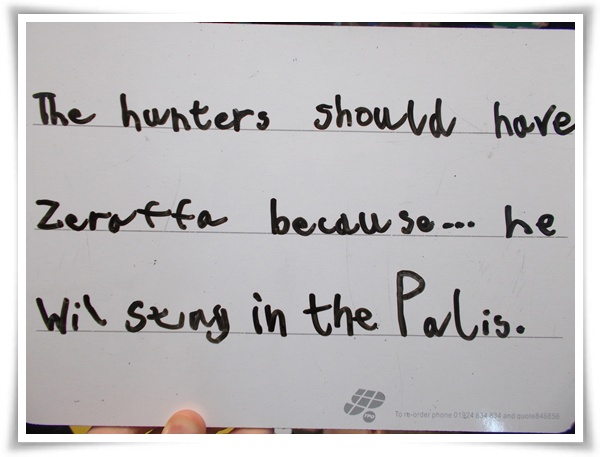 The hunters should have
Zeraffa because... he
Wil stay in the Palis.
To re-order phone 01924 634 634 and quote 846856